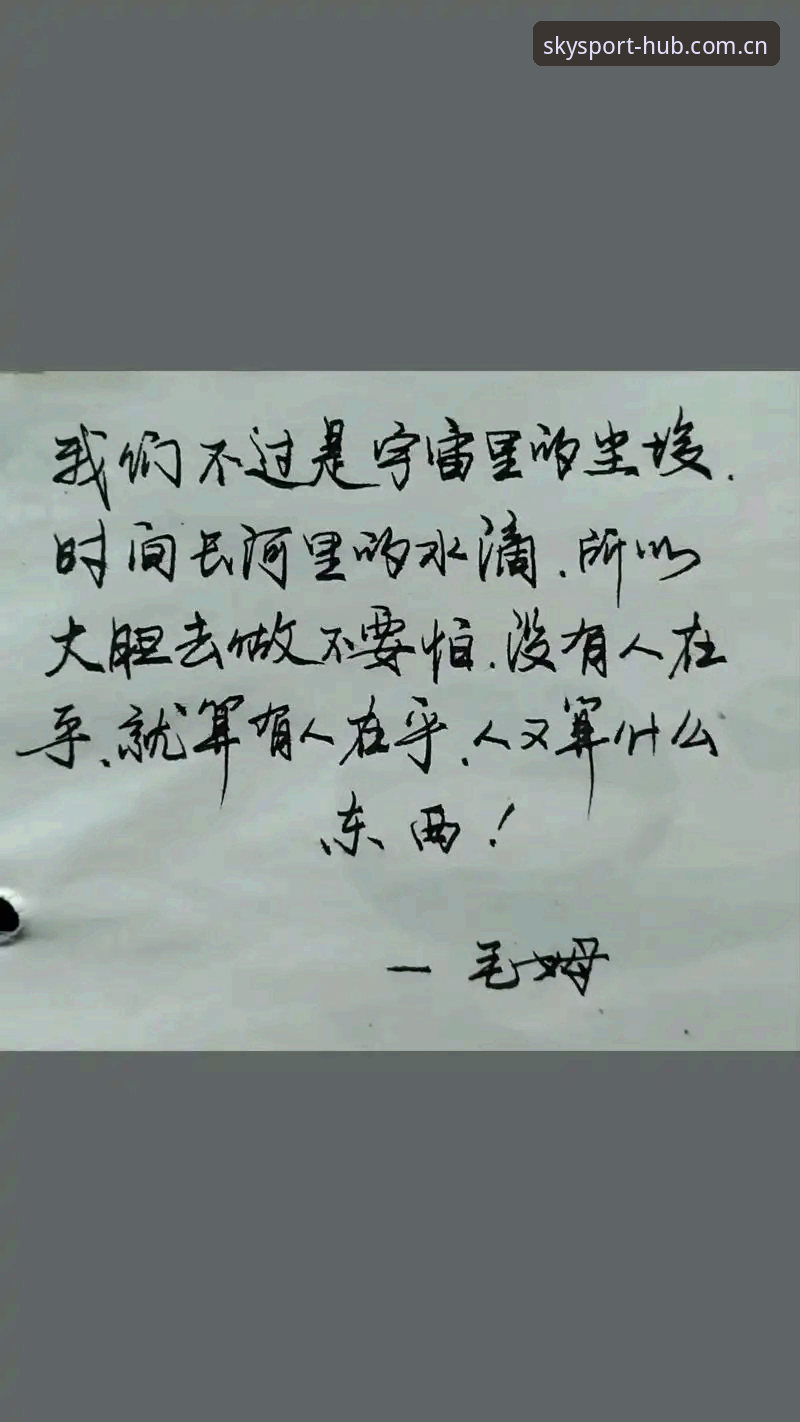 skysport-hub.com.cn
我们不过是宇宙里的尘埃.
时间长河里的水滴.所以
大胆去做不要怕.没有人在
乎.就算有人在乎.人又算什么
东西!
一毛姆